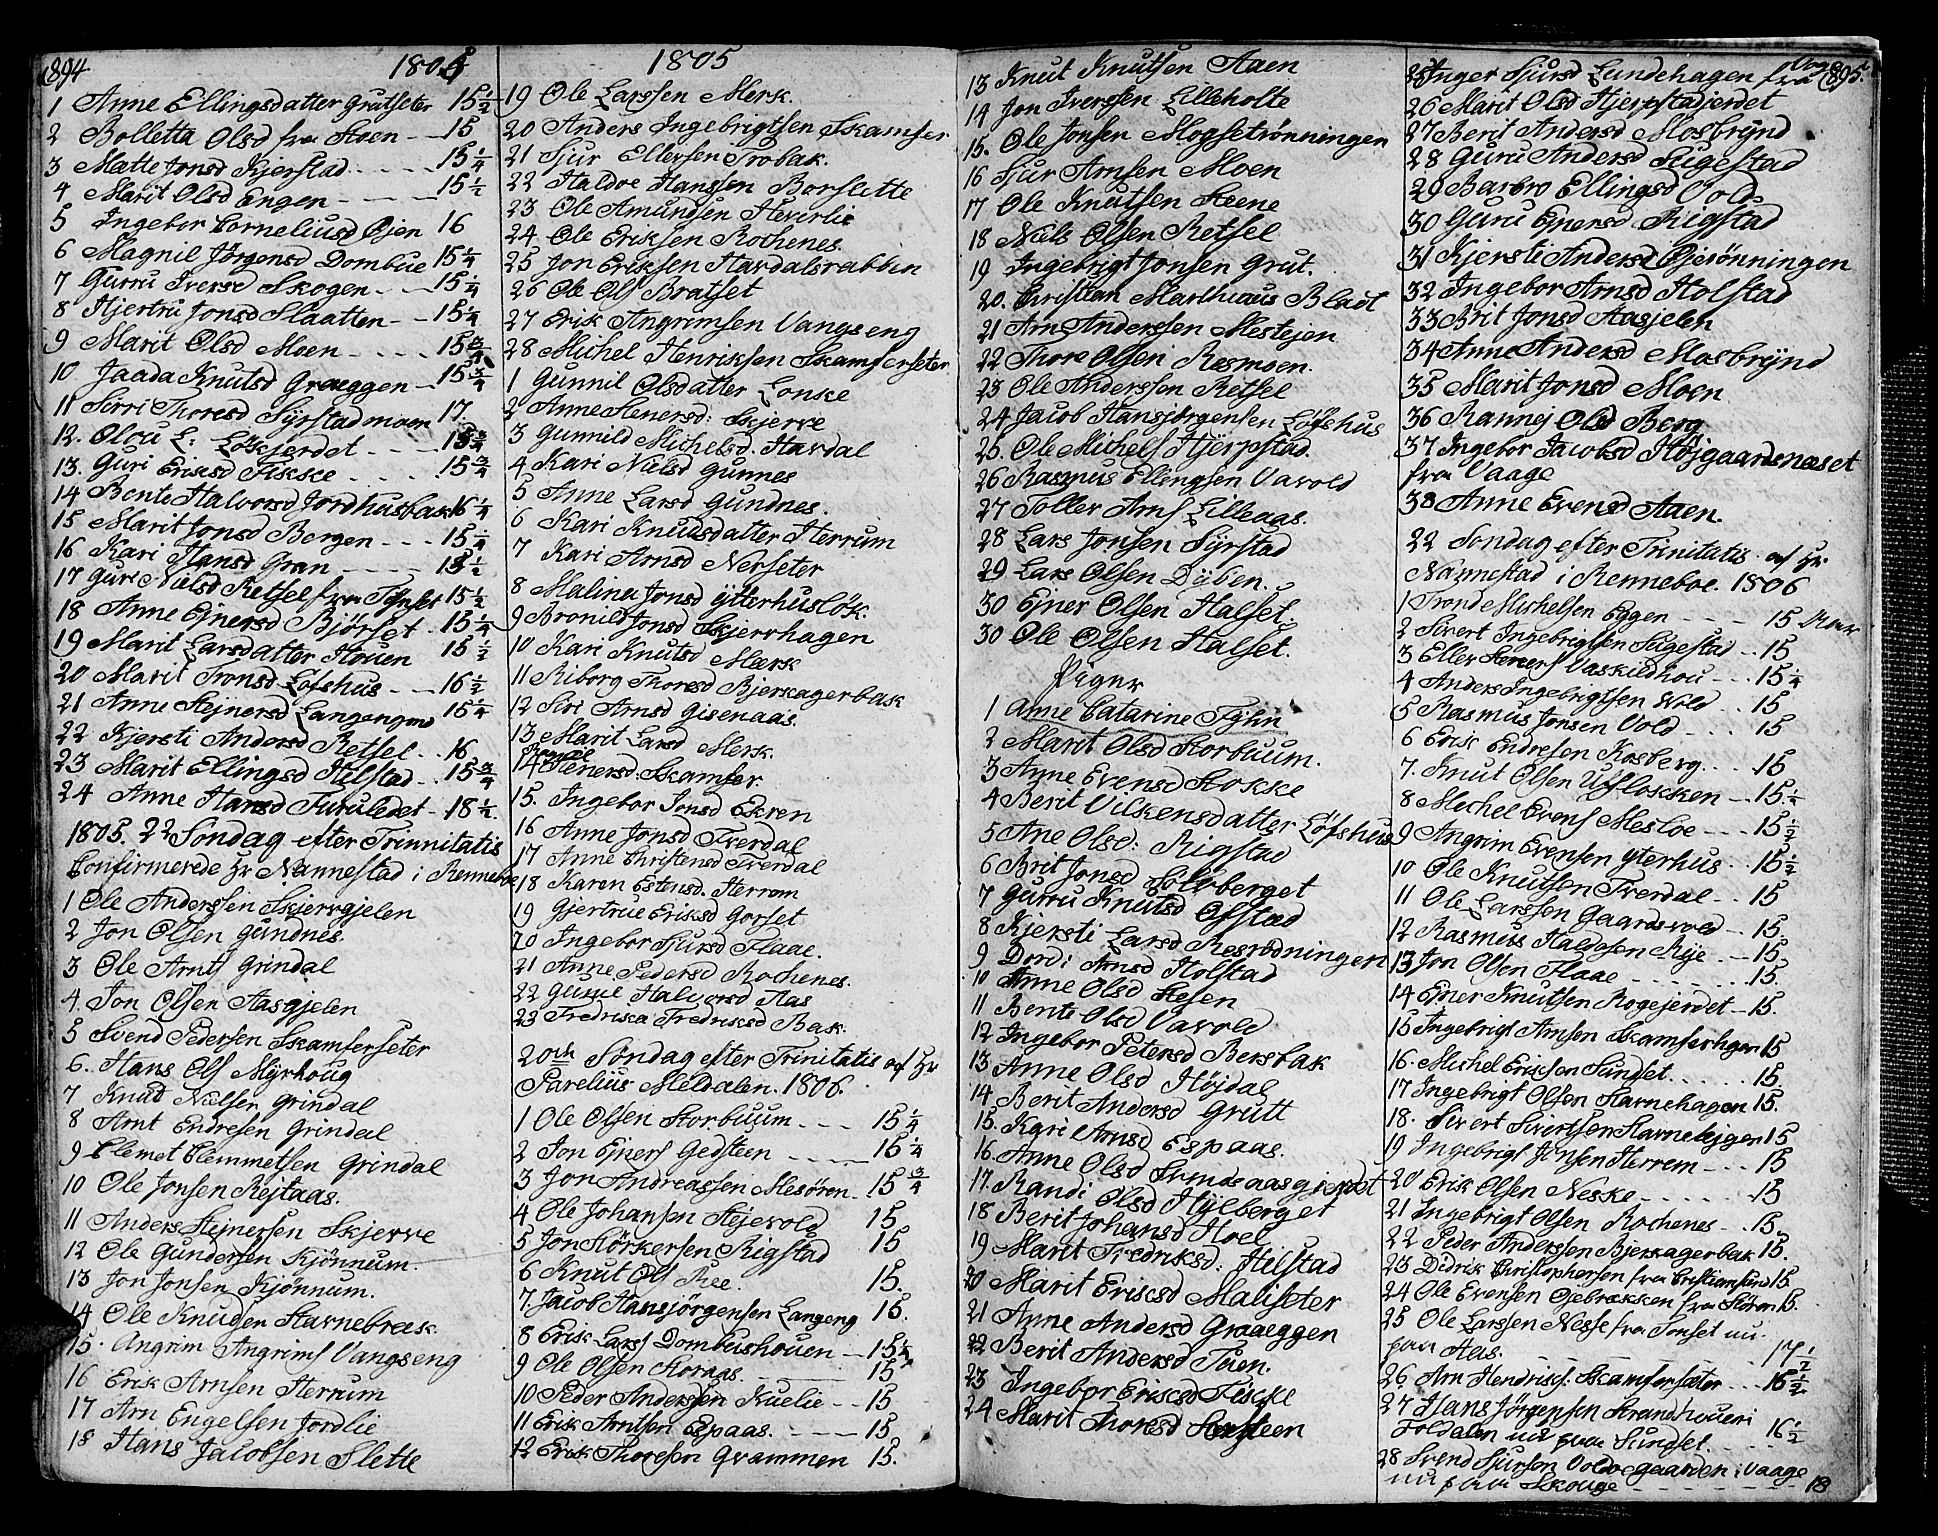 894. 1804
1 Anne Ellingsdatter Grutseter 15 1/2
2 Bolletta Olsd fra Hoen 15
3 Matte Jonsd Kjerstad 15 1/4
4 Marit Olsd Engen 15 1/2
5 Ingebor Corneliusd Ojen 16
6 Magnil Jörgensd Dombue 15 1/4
7 Gurru Iversd Skogen 15 1/4
8 Hjertru Jonsd Slaatten 15 1/4
9 Marit Olsd Moen 15 3/4
10 Jaada Knutsd Graeggen 15 3/4
11 Sirri Thoresd Syrstadmoen 17.
12. Olou L: Lökjerdet 15 3/4
13. Guri Ericsd Fiskke 15 3/4
14 Bente Halvorsd Jordhusbak 16 1/4
15 Marit Jonsd Bergen 15 1/4
16 Kari Hansd Gran 15 1/2
17 Guri Nielsd Retsel fra Tønset 15 1/2
18 Anne Ejnersd Bjørset 15 1/4
19 Marit Larsdatter Houen 15 1/2
20 Marit Tronsd Løfshus 16 1/2
21 Anne Stejnersd Langengmd 15 1/4
22 Kjersti Andersd Retsel 16
23 Marit Ellingsd Helstad 15 3/4
24 Anne Hansd Furuledet 18 1/2.
1805. 22 Søndag efter Trinnitatis
Confirmerede Hr Nannestad i Renneboe
1 Ole Anderssen Skjervgjelen
2 Jon Olsen Gundnes.
3 Ole Arnts Grindal
4. Jon Olsen Aasgjelen
5 Svend Pedersen Skamferseter
6. Hans Ols Myrhoug
7 Knud Nielsen Grindal
8 Arnt Endresen Grindal
9 Clemet Clemmetsen Grindal
10 Ole Jonsen Rejtaas.
11 Anders Stejnersen Skjerve
12 Ole Gundersen Kjönnum.
13 Jon Jonsen Kjönnum.
14 Ole Knudsen Havnebræk.
15. Angrim Angrims Vangseng
16 Erik Arnsen Herrum
17 Arn Engelsen Jordlie
18 Hans Jacobsen Slette
1805
19 Ole Larssen Merk.
20 Anders Ingebrigtsen Skamfer
21 Sjur Ellersen Trobak.
22 Haldoe Hanssen Borslette
23 Ole Amundsen Heverlie
24. Ole Eriksen Rochenes.
25 Jon Eriksen Havdalsrabben
26 Ole Ols Bratset
27 Erik Angrimsen Vangseng
28 Michel Henriksen Skamferseter
1 Gunnil Olsdatter Lonke
2 Anne Stenersd: Skjerve
3 Gunnild Michelsd. Havdal
4 Kari Nielsd Gunnes
5 Anne Larsd Gundnes.
6 Kari Knudsdatter Herrum
7 Kari Arnsd Nerseter
8 Malina Jonsd Ytterhuslök.
9 Bronild Jonsd Skjervhagen
10 Kari Knutsd Mærk
11 Riborg Thoresd Bjerkagerbak
12 Siri Arnsd Gisenaas.
13 Marit Larsd Merk.
14 Stenersd: Skamfer.
15. Ingebor Jonsd Ekren
16 Anne Jonsd Tverdal
17 Anne Christensd Tverdal
18 Karen Estensd. Herrem
19 Gjertrue Ericsd Gorset
20 Ingebor Sjursd Flaae.
21 Anne Pedersd Rochenes.
22 Gunil Halvorsd Aas
23 Fredrica Fredriksd Bak.
20de Søndag efter Trinitatis af Hr
Parelius Meldalen. 1806.
1 Ole Olsen Storbuum 15 1/4
2 Jon Ejners Gedsteen 15 1/4
3 Jon Andreassen Mesören 15 3/4
4 Ole Johansen Stejevold 15
5 Jon Störkersen Rigstad 15
6 Knut Ols Ree. 15.
7. Jacob Hansjörgensen Langeng 15.
8 Erik Lars Dombushouen 15 1/4
9 Ole Olsen Storaas. 15
10 Peder Anderssen Kuelie 15
11 Erik Arntsen Espaas. 15.
12 Erik Thoresen Grammen 15.
13 Knut Knutsen Aaen
14 Jon Iverssen Lilleholte
15. Ole Jonsen Mogsetrønningen
16 Sjur Arnsen Moen
17 Ole Knutsen Steene
18 Niels Olsen Retsel
19 Ingebrigt Jonsen Grut.
20. Christian Matheus Bladt
21 Arn Anderssen Mestejen
22 Thore Olsen Resmoen.
23 Ole Anderssen Retsel
24 Jacob Hansjørgensen Løfshus
25. Ole Michels Hjerpstad.
26 Rasmus Ellingsen Vavold
27 Toller Arns Lilleaas.
28 Lars Jonsen Syrstad
29 Lars Olsen Dyben.
30 Ejner Olsen Halset.
30 Ole Olsen Halset.
Piger
1 Anne Catarine Tyhn
2 Marit Olsd Storbuum.
3 Anne Evensd Stokke
4 Berit Vilkensdatter Løfshus
5 Ane Olsd: Rigstad
6 Brit Jonsd Solvberget
7 Gurru Knutsd Ofstad
8 Kjersti Larsd Resrødningen
9 Dordi Arnsd Holstad
10 Anne Olsd Stesen
11 Bente Olsd Vavold
12 Ingebor Petersd Bersbak
13 Anne Olsd Højdal
14 Berit Andersd Grutt
15. Kari Arnsd Espaas.
16. Anne Olsd
17. Randi Olsd Hylberget
18 Berit Johansd Hoel
19 Marit Fredriksd: Helstad
20 Marit Ericsd Mauseter
21 Anne Andersd Graeggen
22 Berit Andersd Tuen.
23 Ingebor Ericsd Fiscke
24 Marit Thoresd
895.
25 Inger Sjursd Lundehagen fra Vaage
26 Marit Olsd Hjerpstadjerdet
27 Berit Andersd Mosbrynd
28 Guru Andersd Fugestad
29 Barbro Ellingsd Vold
30 Guru Ejnersd Rigstad
31 Kjersti Andersd Bjerönningen
32 Ingebor Arnsd Holstad
33 Brit Jonsd Aasjelen
34 Anne Andersd Mosbrynd
35 Marit Jonsd Moen
36 Rannej Olsd Berg
37 Ingebor Jacobsd Højgaardsnæset
fra Vaage
38 Anne Evensd Aaen.
22 Sondag efter Trinitatis af Hr
Nannestad i Renneboe. 1806
1 Trond Michelsen Eggen 15 Aar
2 Sivert Ingebrigtsen Fugestad 15
3 Eller Steners Vaskildhou 15 1/4
4 Anders Ingebrigtsen Vold 15
5 Rasmus Jonsen Vold 15
6 Erik Endresen Kosberg 15
7. Knut Olsen Ufløkken 15 1/2
8 Michel Evens Mesloe 15 1/2
9 Angrim Evensen Yterhus 15 1/2
10 Ole Knutsen Tverdal 15
11 Ole Larssen Gaardsvold 15.
12 Rasmus Haldosen Rye 15.
13 Jon Olsen Flaae 15.
14 Ejner Knutsen Rogejerdet 15.
15 Ingebrigt Arnsen Skamferhgen 15
16. Michel Eriksen Sundset 15.
17 Ingebrigt Olsen Havnehagen 15.
18. Sivert Sivertsen Havnehejgen 15
19 Ingebrigt Jonsen Herrem 15
20 Erik Olsen Neske 15
21 Ingebrigt Olsen Rochenes 15.
22 Peder Anderssen Bjerkagerbak 15.
23 Didrik Christophersen fra Cristiansund 15.
24 Ole Evensen Ojebrækken fra Støren 15.
25 Ole Larssen Nesse fra Tonset nu
paa Aas. 17 1/2
26 Arn Hendrics: Skamfersæter 16 1/2
27 Hans Jørgensen Strandhoueri
Foldalen nu paa Sundset 16 1/2
28 Svend Sjursen Voldegaarden i Vaage
nu paa Skouge 18